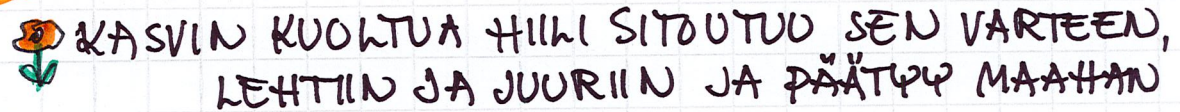 KASVIN KUOLTUA HIILI SITOUTUU SEN VARTEEN,
LEHTIIN JA JUURIIN JA PÄÄTYY MAAHAN